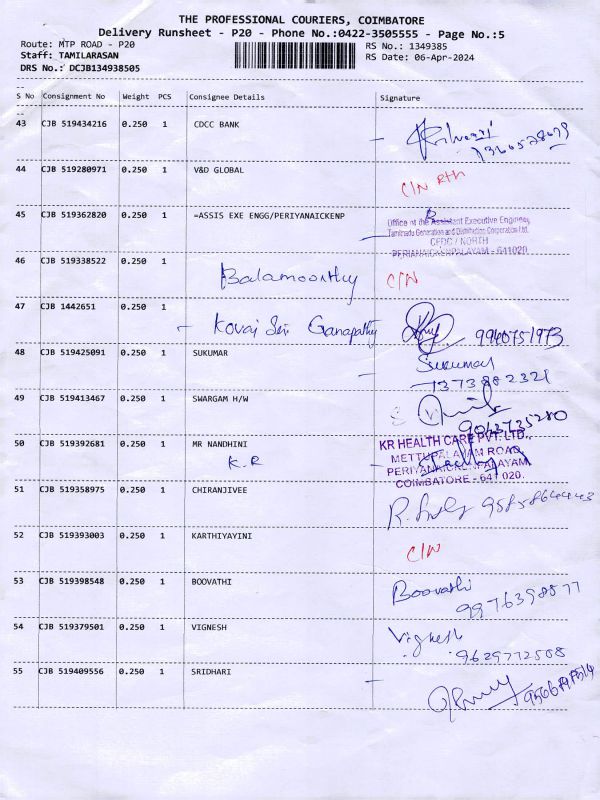 THE PROFESSIONAL COURIERS, COIMBATORE
Delivery Runsheet - P20 - Phone No.:0422-3505555 - Page No.:5
Route: MTP ROAD - P20 RS No.: 1349385
Staff: TAMILARASAN RS Date: 06-Apr-2024
DRS No.: DCJB134938505
S No Consignment No Weight PCS Consignee Details Signature
43 CJB 519434216 0.250 1 CDCC BANK
44 CJB 519280971 0.250 1 V&D GLOBAL
C/N Rth
45 CJB 519362820 0.250 1 =ASSIS EXE ENGG/PERIYANAICKENP
Office of the Assistant Executive Engineer
Tamilnadu Generation and Distribution Corporation Ltd.
CEDC / NORTH
PERIANAICKENPALAYAM - 641020
46 CJB 519338522 0.250 1
Balamoorthy C/N
47 CJB 1442651 0.250 1
Kovai Sri Ganapathy 9940751973
48 CJB 519425091 0.250 1 SUKUMAR
Sukumar
7373882321
49 CJB 519413467 0.250 1 SWARGAM H/W
9043735280
50 CJB 519392681 0.250 1 MR NANDHINI
K.R
KR HEALTH CARE PVT. LTD.,
METTUPALAYAM ROAD,
PERIYANAICKENPALAYAM,
COIMBATORE - 641 020.
51 CJB 519358975 0.250 1 CHIRANJIVEE
52 CJB 519393003 0.250 1 KARTHIYAYINI
C/N
53 CJB 519398548 0.250 1 BOOVATHI
Boovathi
9976398577
54 CJB 519379501 0.250 1 VIGNESH
Vignesh
9629772508
55 CJB 519409556 0.250 1 SRIDHARI